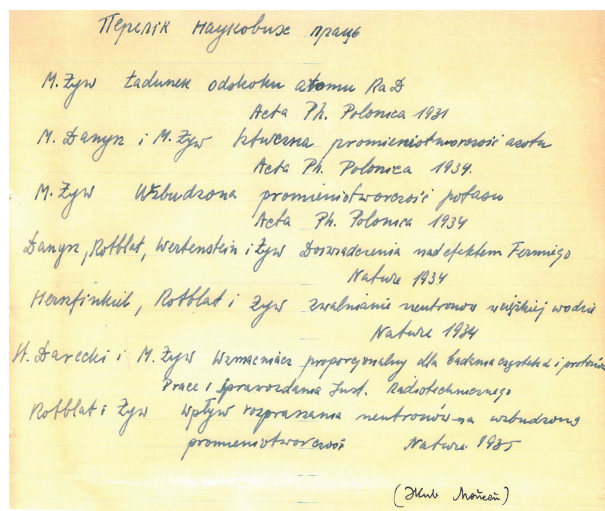 Перелік наукових праць
M. Żyw Ładunek odskoku atomu RaD
Acta Ph. Polonica 1931
M. Danysz i M. Żyw Sztuczna promieniotworczość azotu
Acta Ph. Polonica 1934.
M. Żyw Wzbudzona promieniotworczość potasu
Acta Ph. Polonica 1934
Danysz, Rotblat, Wertenstein i Żyw Doswiadczenia nad efektem Fermiego
Nature 1934
Herszfinkiel, Rotblat i Żyw zwalnianie neutronow w ciężkiej wodzie
Nature 1934
Darecki i M. Żyw Wzmacniacz proporcjonalny dla badania cząstek α i protonów
Prace i Sprawozdania Inst. Radiotechnicznego
Rotblat i Żyw Wpływ rozpraszania neutronów na wzbudzoną
promieniotworczość Nature 1935